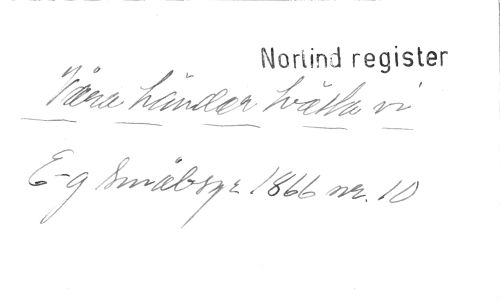 Norlind register
Våra händer tvätta vi
E-g Småbsyr 1866 nr. 10